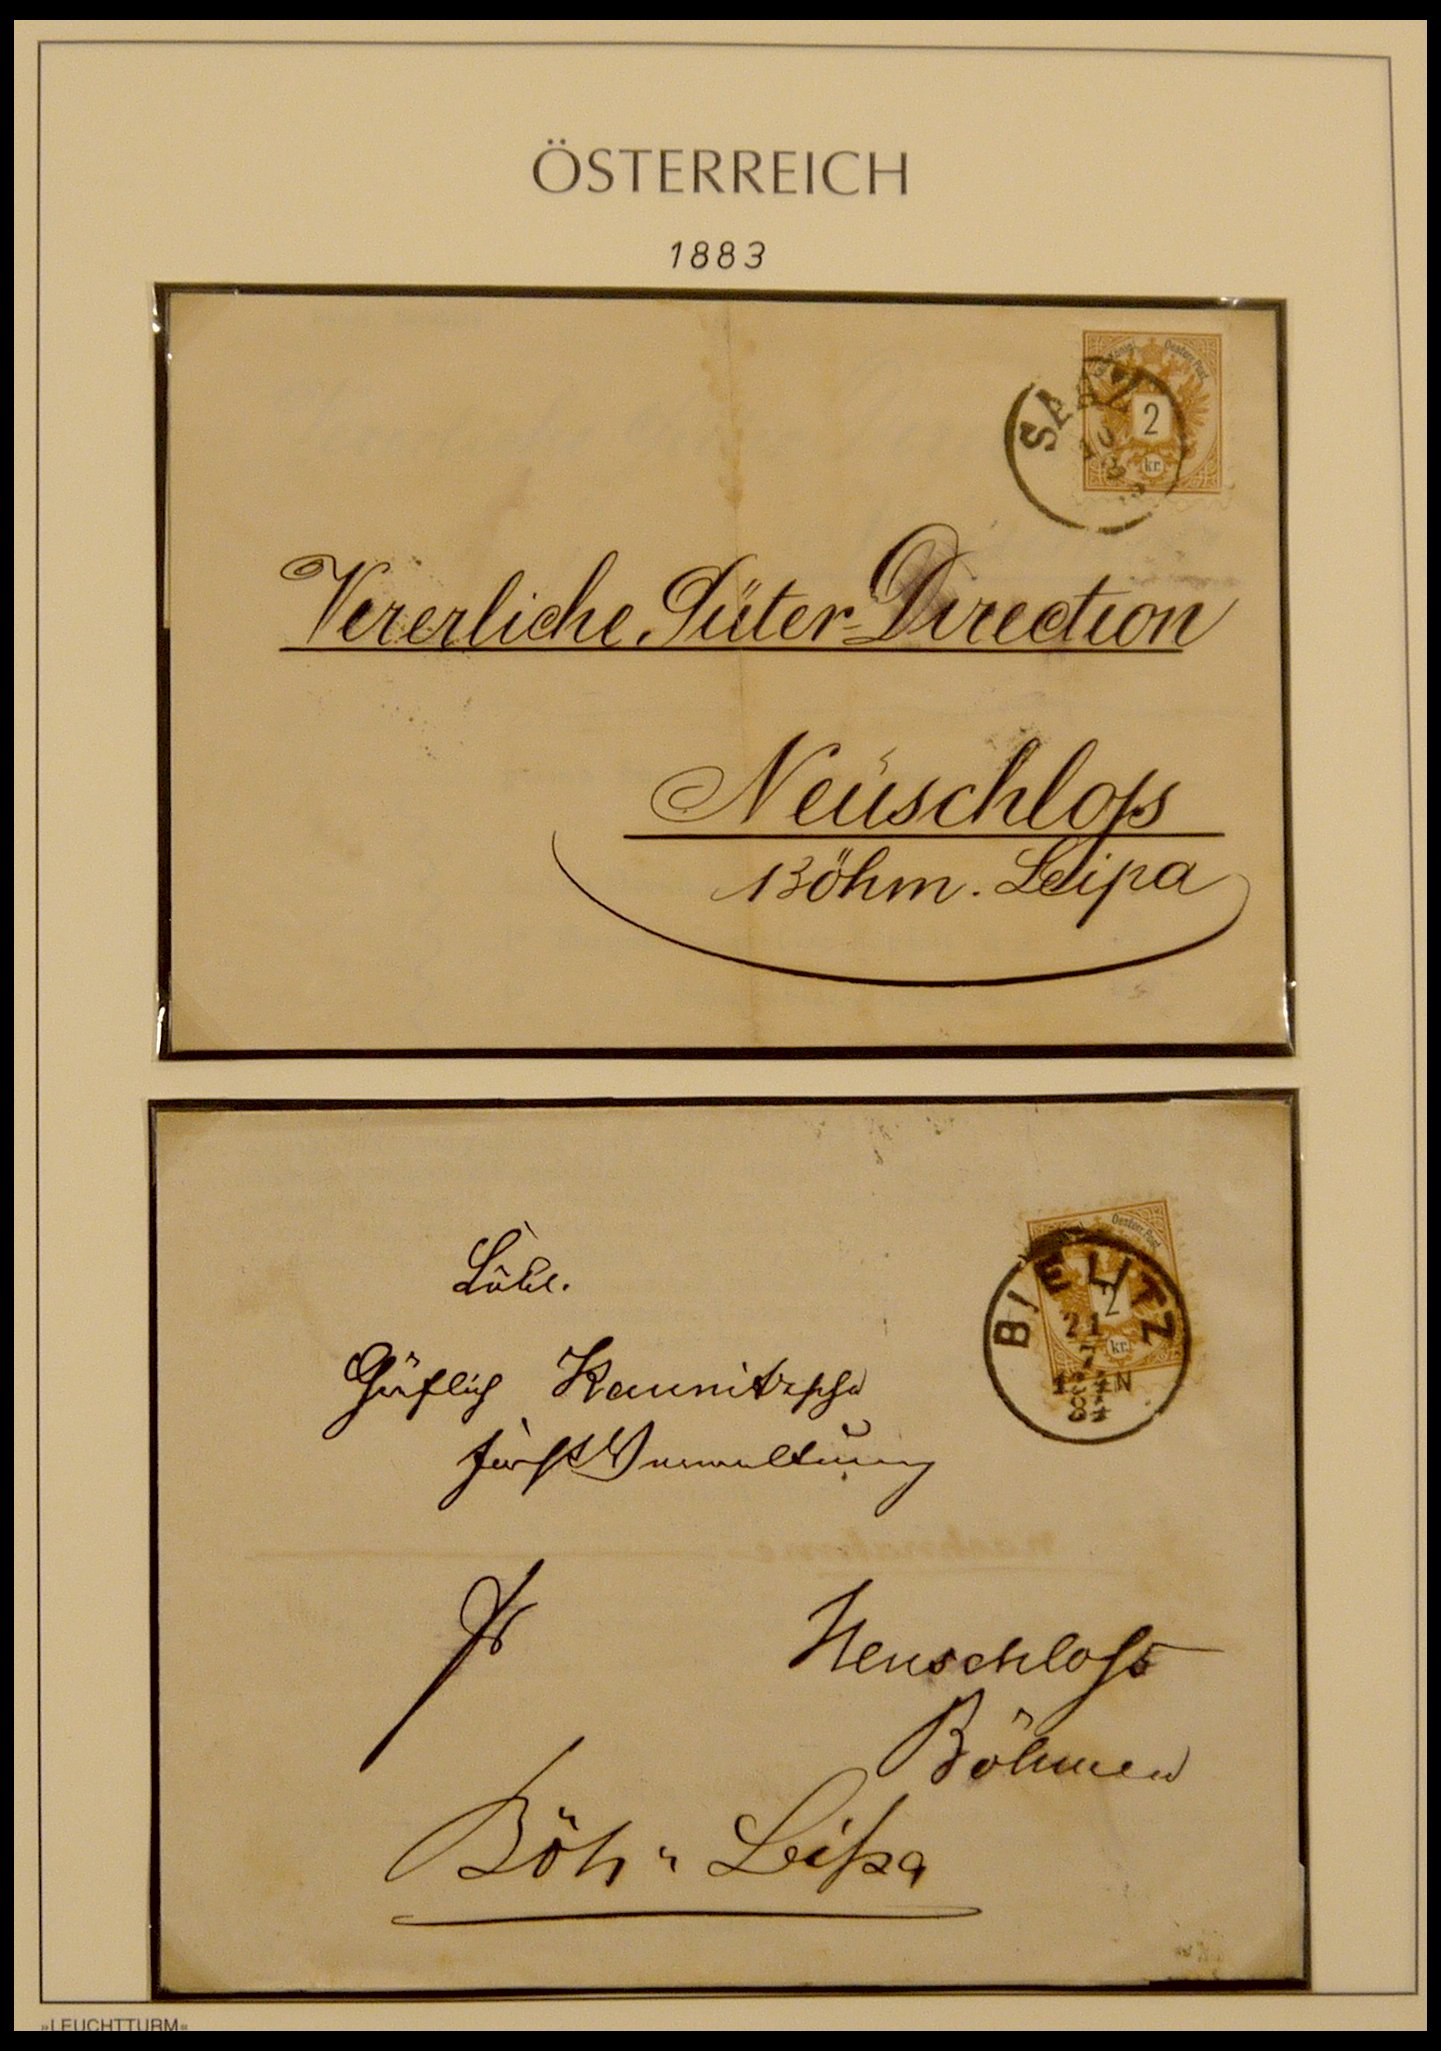 ÖSTERREICH
1883
Oesterr. Post
2
kr.
SAAZ
Vererliche Güter-Direction
Neüschloss
Böhm. Leipa
Oesterr. Post
2
kr.
BIELITZ
21
7
84
Löbl.
Gräflich Kaunitzsche
Forst Verwaltung
Neuschloss
Böhmen
Böh. Leipa
»LEUCHTTURM«